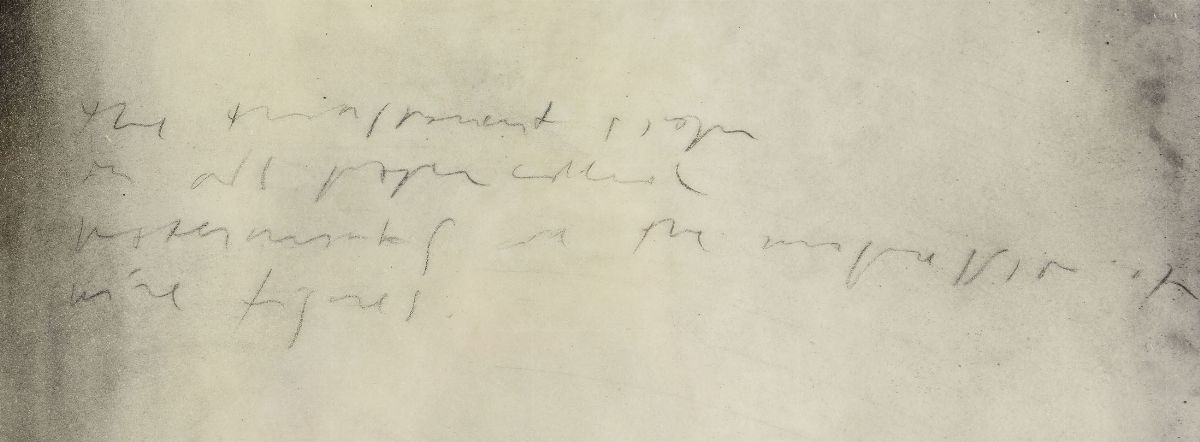 the transparent sign
in old paper called
watermarks is the impression of
wire figures.